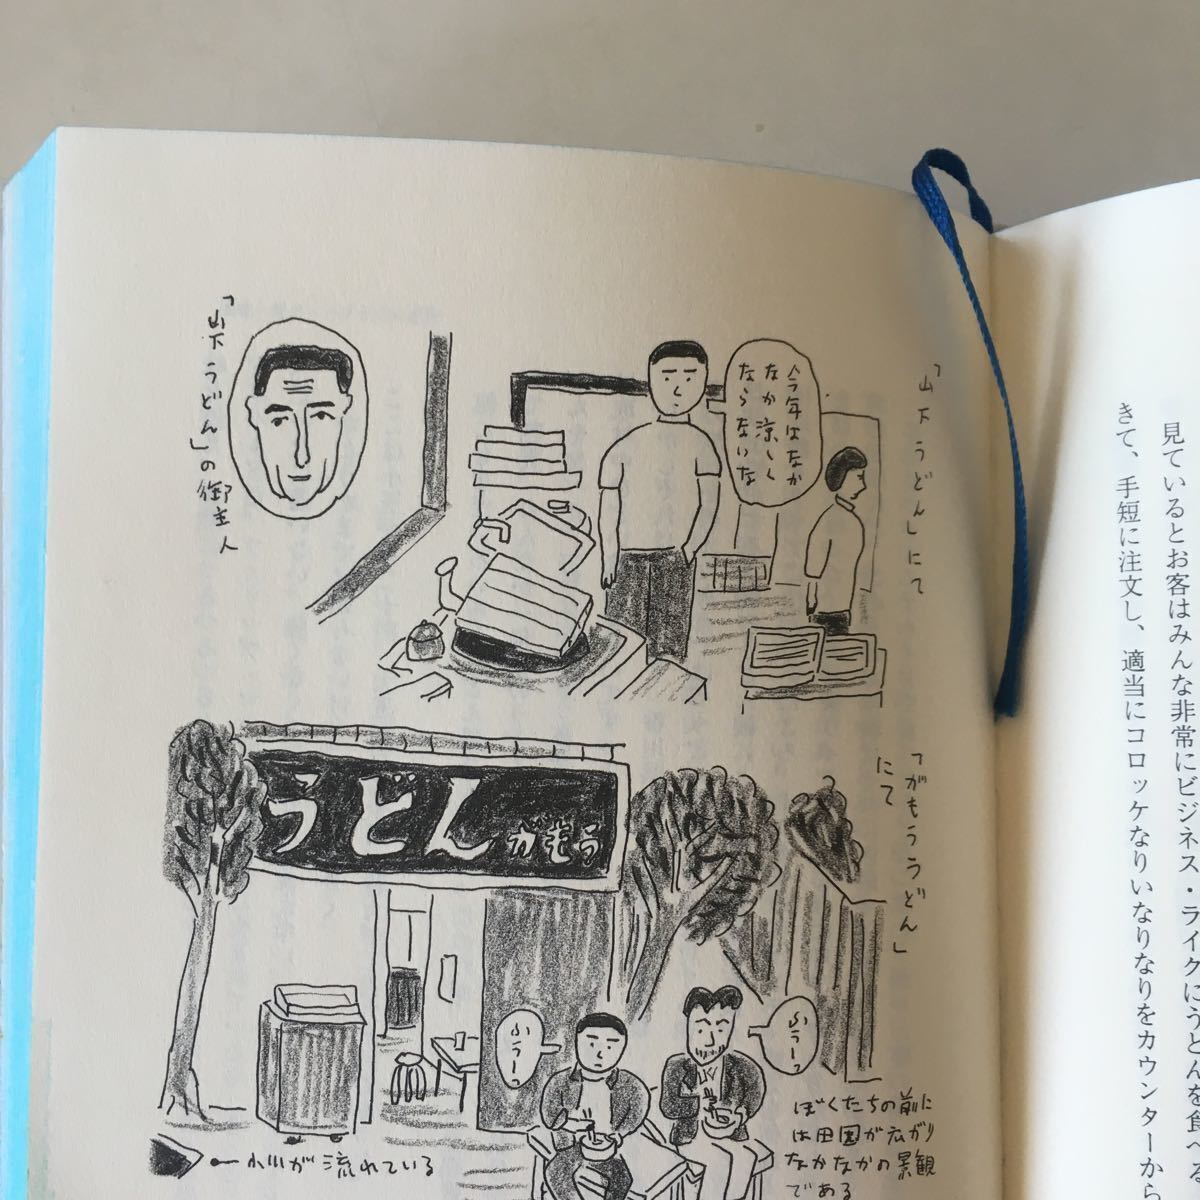 見ているとお客はみんな非常にビジネス・ライクにうどんを食べ
きて、手短に注文し、適当にコロッケなりいなりなりをカウンターから
「山下うどん」にて
今年はなか
なか涼しく
ならないな
「山下うどん」の御主人
「がもううどん」
にて
うどん
がもう
ふうーっ
ふうーっ
ぼくたちの前に
は田園が広がり
なかなかの景観
である
小川が流れている